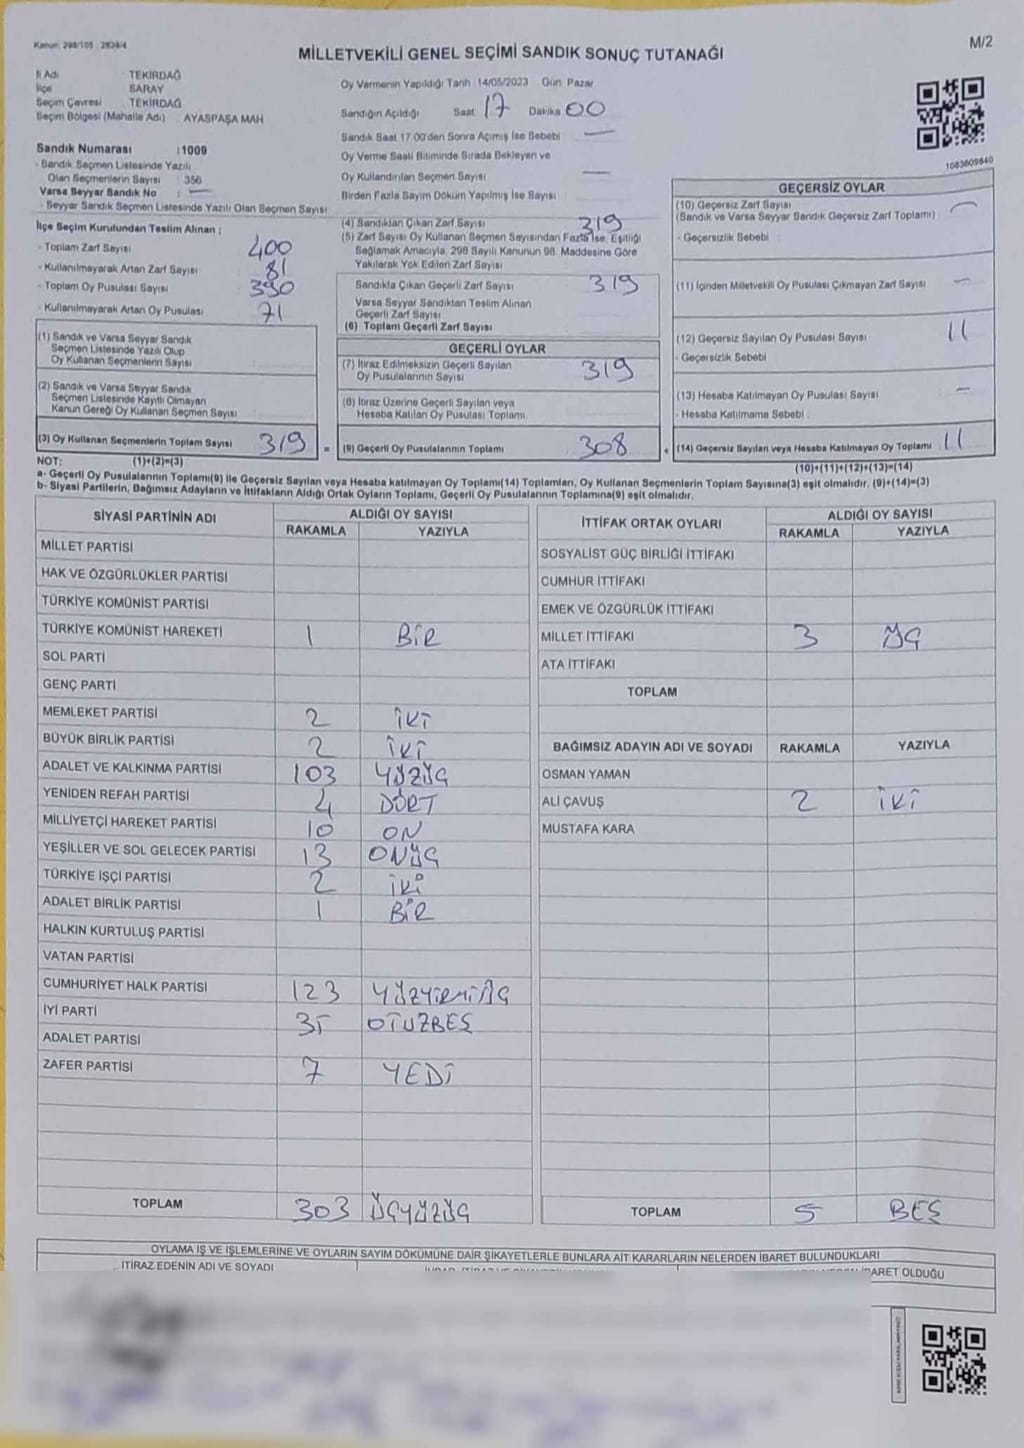 Kanun: 298/105 - 2839/4
M/2
MİLLETVEKİLİ GENEL SEÇİMİ SANDIK SONUÇ TUTANAĞI
İl Adı TEKİRDAĞ
İlçe SARAY
Seçim Çevresi TEKİRDAĞ
Seçim Bölgesi (Mahalle Adı) : AYASPAŞA MAH
Sandık Numarası : 1009
- Sandık Seçmen Listesinde Yazılı
Olan Seçmenlerin Sayısı : 356
Varsa Seyyar Sandık No : —
- Seyyar Sandık Seçmen Listesinde Yazılı Olan Seçmen Sayısı
Oy Vermenin Yapıldığı Tarih 14/05/2023 Gün: Pazar
Sandığın Açıldığı Saat 17 Dakika 00
Sandık Saat 17:00'den Sonra Açımış İse Sebebi —
Oy Verme Saati Bitiminde Sırada Bekleyen ve
Oy Kullandırılan Seçmen Sayısı —
Birden Fazla Sayım Döküm Yapılmış İse Sayısı
1083609840
İlçe Seçim Kurulundan Teslim Alınan ;
- Toplam Zarf Sayısı 400
- Kullanılmayarak Artan Zarf Sayısı 81
- Toplam Oy Pusulası Sayısı 390
- Kullanılmayarak Artan Oy Pusulası 71
(1) Sandık ve Varsa Seyyar Sandık
Seçmen Listesinde Yazılı Olup
Oy Kullanan Seçmenlerin Sayısı
(2) Sandık ve Varsa Seyyar Sandık
Seçmen Listesinde Kayıtlı Olmayan
Kanun Gereği Oy Kullanan Seçmen Sayısı
(3) Oy Kullanan Seçmenlerin Toplam Sayısı 319 =
(4) Sandıktan Çıkan Zarf Sayısı 319
(5) Zarf Sayısı Oy Kullanan Seçmen Sayısından Fazla İse, Eşitliği
Sağlamak Amacıyla, 298 Sayılı Kanunun 98. Maddesine Göre
Yakılarak Yok Edilen Zarf Sayısı
Sandıkta Çıkan Geçerli Zarf Sayısı 319
Varsa Seyyar Sandıktan Teslim Alınan
Geçerli Zarf Sayısı
(6) Toplam Geçerli Zarf Sayısı
GEÇERLİ OYLAR
(7) İtiraz Edilmeksizin Geçerli Sayılan
Oy Pusulalarının Sayısı 319
(8) İtiraz Üzerine Geçerli Sayılan veya
Hesaba Katılan Oy Pusulası Toplamı
(9) Geçerli Oy Pusulalarının Toplamı 308 +
GEÇERSİZ OYLAR
(10) Geçersiz Zarf Sayısı —
(Sandık ve Varsa Seyyar Sandık Geçersiz Zarf Toplamı)
- Geçersizlik Sebebi :
(11) İçinden Milletvekili Oy Pusulası Çıkmayan Zarf Sayısı —
(12) Geçersiz Sayılan Oy Pusulası Sayısı 11
- Geçersizlik Sebebi
(13) Hesaba Katılmayan Oy Pusulası Sayısı —
- Hesaba Katılmama Sebebi :
(14) Geçersiz Sayılan veya Hesaba Katılmayan Oy Toplamı 11
NOT: (1)+(2)=(3) (10)+(11)+(12)+(13)=(14)
a- Geçerli Oy Pusulalarının Toplamı(9) ile Geçersiz Sayılan veya Hesaba katılmayan Oy Toplamı(14) Toplamları, Oy Kullanan Seçmenlerin Toplam Sayısına(3) eşit olmalıdır. (9)+(14)=(3)
b- Siyasi Partilerin, Bağımsız Adayların ve İttifakların Aldığı Ortak Oyların Toplamı, Geçerli Oy Pusulalarının Toplamına(9) eşit olmalıdır.
SİYASİ PARTİNİN ADI ALDIĞI OY SAYISI
RAKAMLA YAZIYLA
MİLLET PARTİSİ
HAK VE ÖZGÜRLÜKLER PARTİSİ
TÜRKİYE KOMÜNİST PARTİSİ
TÜRKİYE KOMÜNİST HAREKETİ 1 BİR
SOL PARTİ
GENÇ PARTİ
MEMLEKET PARTİSİ 2 İKİ
BÜYÜK BİRLİK PARTİSİ 2 İKİ
ADALET VE KALKINMA PARTİSİ 103 YÜZÜÇ
YENİDEN REFAH PARTİSİ 4 DÖRT
MİLLİYETÇİ HAREKET PARTİSİ 10 ON
YEŞİLLER VE SOL GELECEK PARTİSİ 13 ONÜÇ
TÜRKİYE İŞÇİ PARTİSİ 2 İKİ
ADALET BİRLİK PARTİSİ 1 BİR
HALKIN KURTULUŞ PARTİSİ
VATAN PARTİSİ
CUMHURİYET HALK PARTİSİ 123 YÜZYİRMİÜÇ
İYİ PARTİ 35 OTUZBEŞ
ADALET PARTİSİ
ZAFER PARTİSİ 7 YEDİ
TOPLAM 303 ÜÇYÜZÜÇ
İTTİFAK ORTAK OYLARI ALDIĞI OY SAYISI
RAKAMLA YAZIYLA
SOSYALİST GÜÇ BİRLİĞİ İTTİFAKI
CUMHUR İTTİFAKI
EMEK VE ÖZGÜRLÜK İTTİFAKI
MİLLET İTTİFAKI 3 ÜÇ
ATA İTTİFAKI
TOPLAM
BAĞIMSIZ ADAYIN ADI VE SOYADI RAKAMLA YAZIYLA
OSMAN YAMAN
ALİ ÇAVUŞ 2 İKİ
MUSTAFA KARA
TOPLAM 5 BEŞ
OYLAMA İŞ VE İŞLEMLERİNE VE OYLARIN SAYIM DÖKÜMÜNE DAİR ŞİKAYETLERLE BUNLARA AİT KARARLARIN NELERDEN İBARET BULUNDUKLARI
İTİRAZ EDENİN ADI VE SOYADI
İBARET OLDUĞU